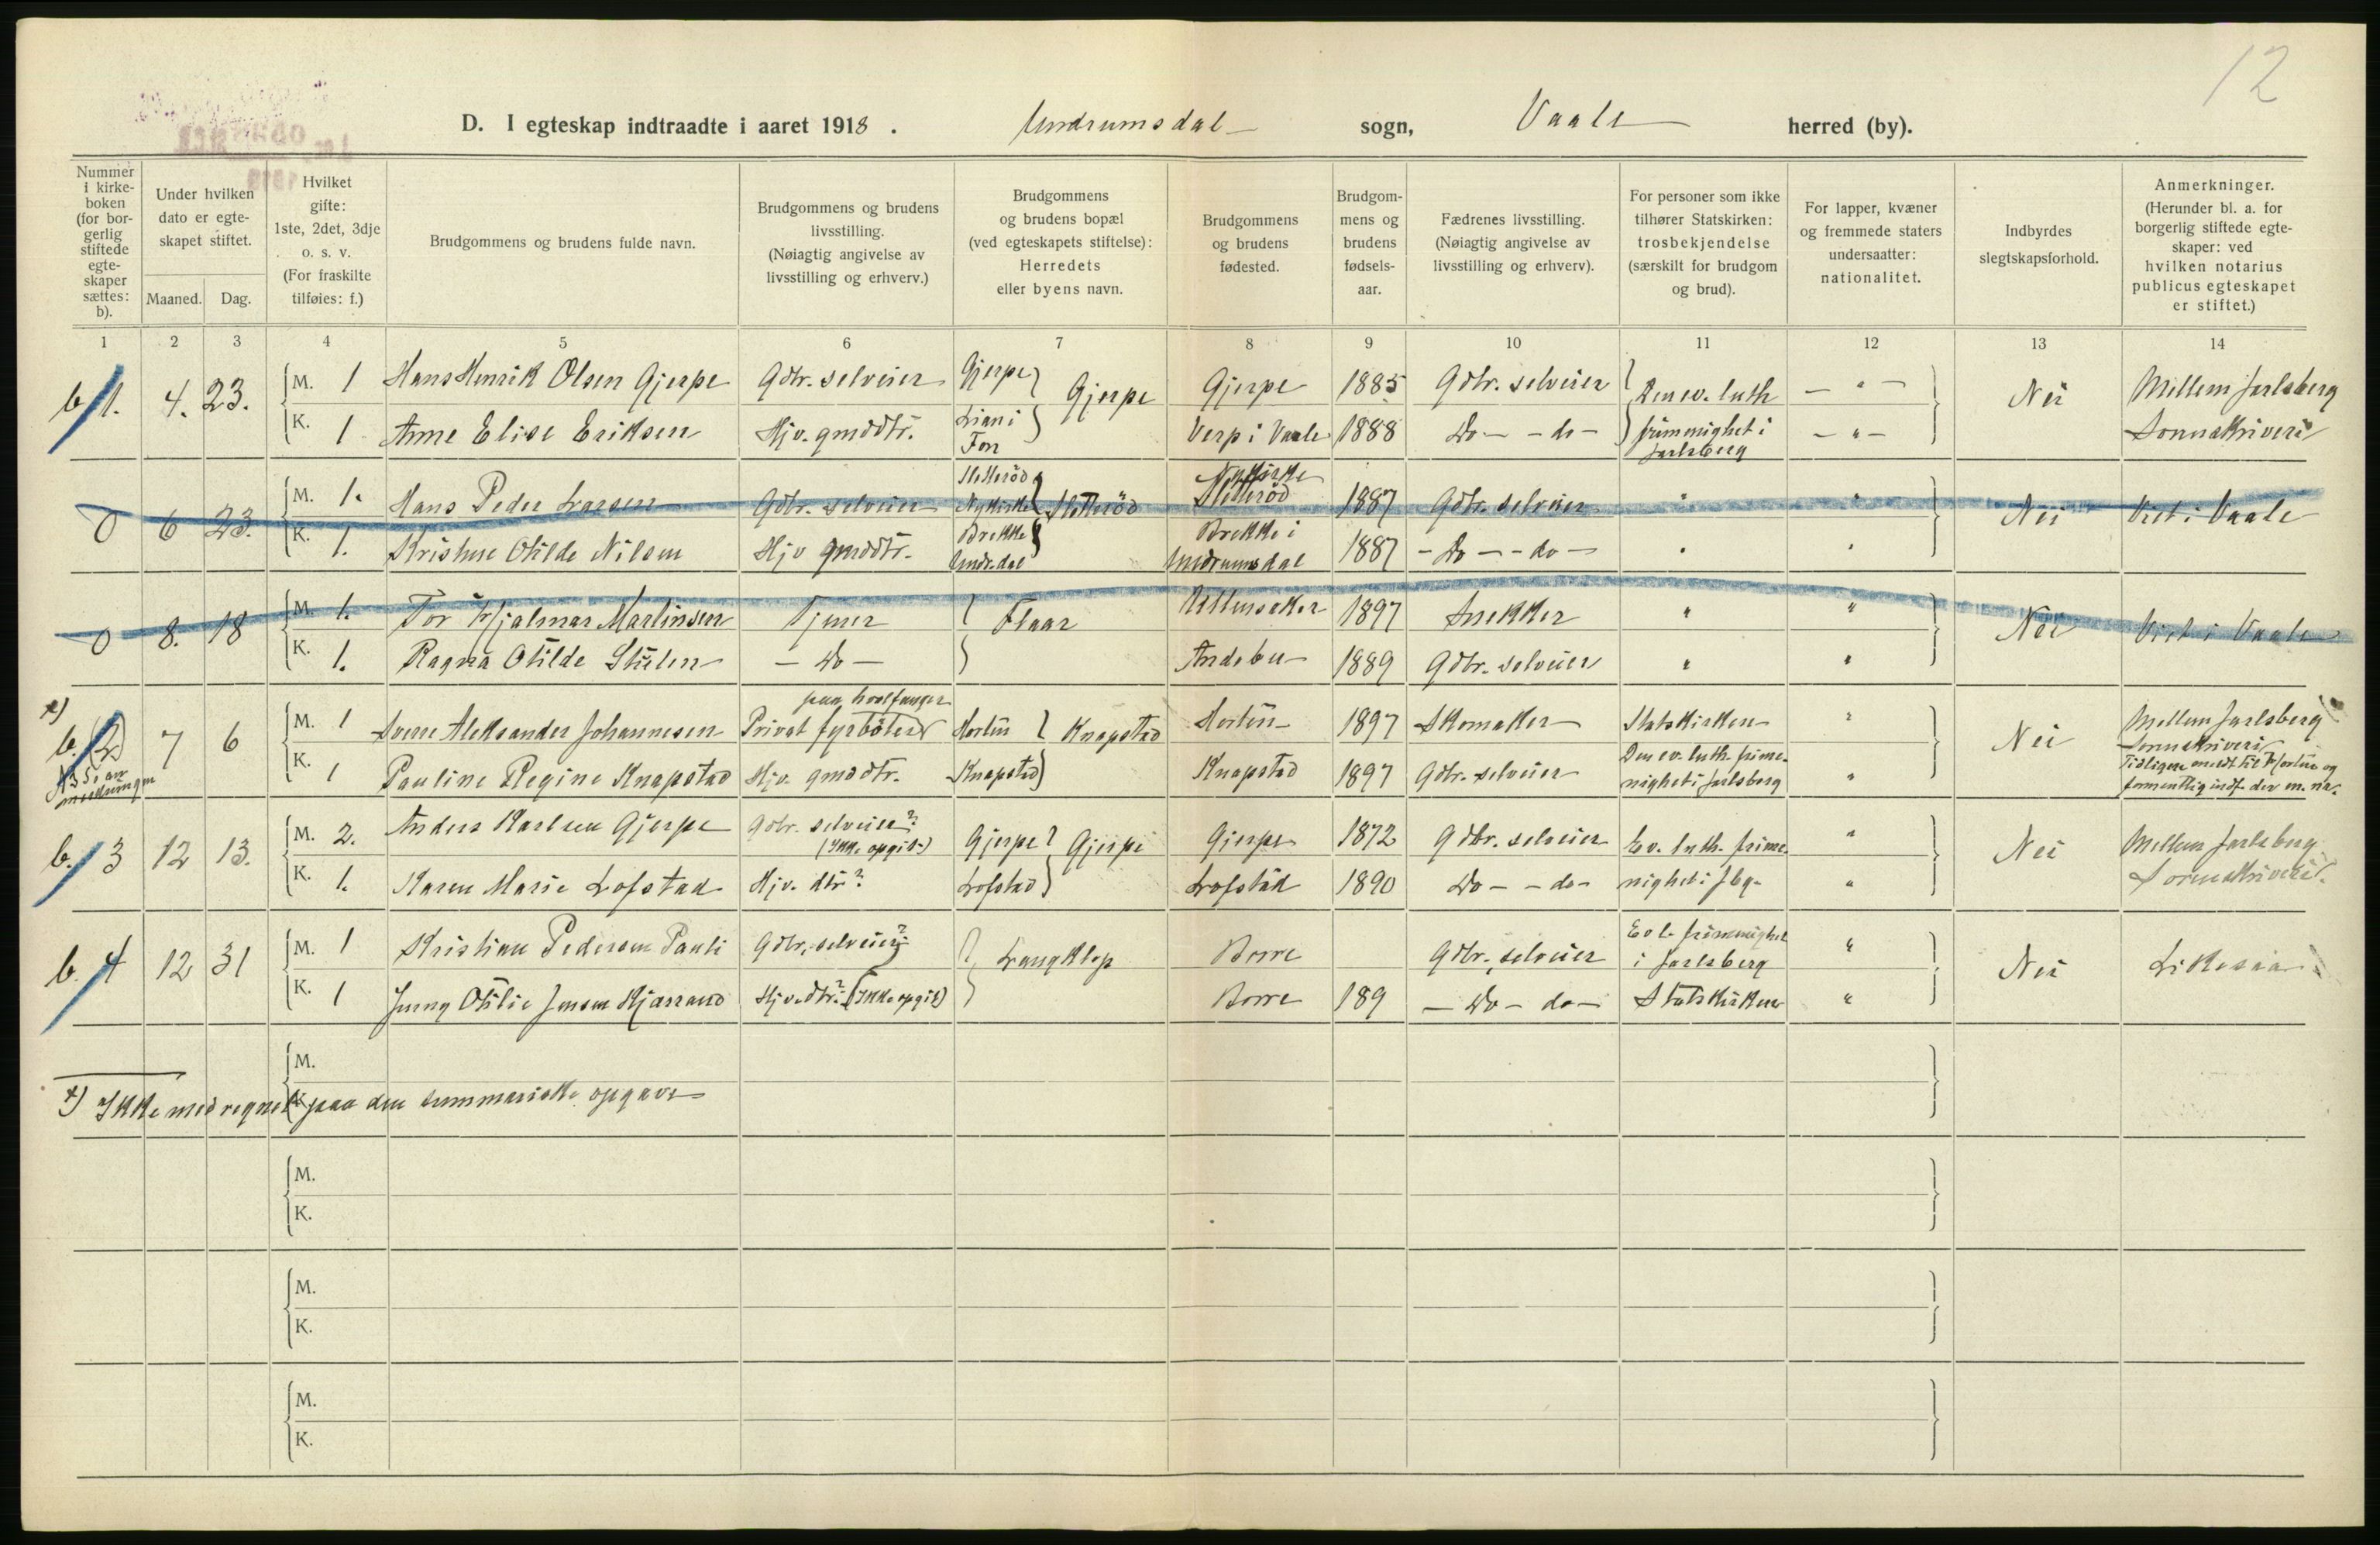 12
D. I egteskap indtraadte i aaret 1918. Undrumsdal sogn, Vaale herred (by).
Nummer i kirkeboken (for borgerlig stiftede egteskaper sættes: b).
Under hvilken dato er egteskapet stiftet.
Maaned. Dag.
Hvilket gifte: 1ste, 2det, 3dje o. s. v. (For fraskilte tilføies: f.)
Brudgommens og brudens fulde navn.
Brudgommens og brudens livsstilling. (Nøiagtig angivelse av livsstilling og erhverv.)
Brudgommens og brudens bopæl (ved egteskapets stiftelse): Herredets eller byens navn.
Brudgommens og brudens fødested.
Brudgommens og brudens fødselsaar.
Fædrenes livsstilling. (Nøiagtig angivelse av livsstilling og erhverv).
For personer som ikke tilhører Statskirken: trosbekjendelse (særskilt for brudgom og brud).
For lapper, kvæner og fremmede staters undersaatter: nationalitet.
Indbyrdes slegtskapsforhold.
Anmerkninger. (Herunder bl. a. for borgerlig stiftede egteskaper: ved hvilken notarius publicus egteskapet er stiftet.)
1 2 3 4 5 6 7 8 9 10 11 12 13 14
b. 1. 4. 23. M. 1 Hans Henrik Olsen Gjerpe Gdbr. selveier Gjerpe Gjerpe Gjerpe 1885 Gdbr. selveier Den ev. luth — " — Nei Mellem Jarlsberg
K. 1 Anne Elise Eriksen Hjv. gmddtr. Liani Fon Verp i Vaale 1888 Do — do — frimenighet i Jarlsberg — " — Sorenskriveri
0 6 23. M. 1. Hans Peder Larsen Gdbr. selveier Sletterød Nykirke Sletterød Nykirke Sletterød 1887 Gdbr. selveier " " Nei Viet i Vaale
K. 1. Kristine Otilde Nilsen Hjv gmddtr. Brekke Undr.dal Brekke i Undrumsdal 1887 — Do — do — " "
0 8. 18 M. 1. Tor Hjalmar Martinsen Tjener Flaar Ullensaker 1897 Snekker " " Nei Viet i Vaale
K. 1. Ragna Otilde Stulen — Do — Andebu 1889 Gdbr. selveier " "
x) b. (2) 7 6 M. 1 Sverre Aleksander Johannesen Privat fyrbøter paa hvalfanger Horten Knapstad Horten 1897 Skomaker Statskirken " Nei Mellem Jarlsberg Sorenskriveri
K. 1 Pauline Regine Knapstad Hjv. gmddtr. Knapstad Knapstad 1897 Gdbr. selveier Den ev. luth. frimenighet i Jarlsberg " Tidligere meldt til Horten og formentlig indf. der m. nr.
b. 3 12 13. M. 2. Anders Karlsen Gjerpe Gdbr. selveier? (Ikke opgit.) Gjerpe Gjerpe Gjerpe 1872 Gdbr. selveier Ev. luth. frime- " Nei Mellem Jarlsberg
K. 1. Karen Marie Lofstad Hjv. dtr? Lofstad Lofstad 1890 Do — do — nighet i Jbg. " Sorenskriveri.
b. 4 12 31 M. 1 Kristian Pedersen Pauli Gdbr. selveier? Langklep Borre Gdbr. selveier Ev l. frimenighet i Jarlsberg " Nei Likesaa
K. 1 Jenny Otilie Jensen Kjærraud Hjv. dtr? (Ikke opgit) Borre 189 — Do — do — Statskirken "
M.
K.
x) Ikke medregnet paa den summariske opgave
M.
K.
M.
K.
M.
K.